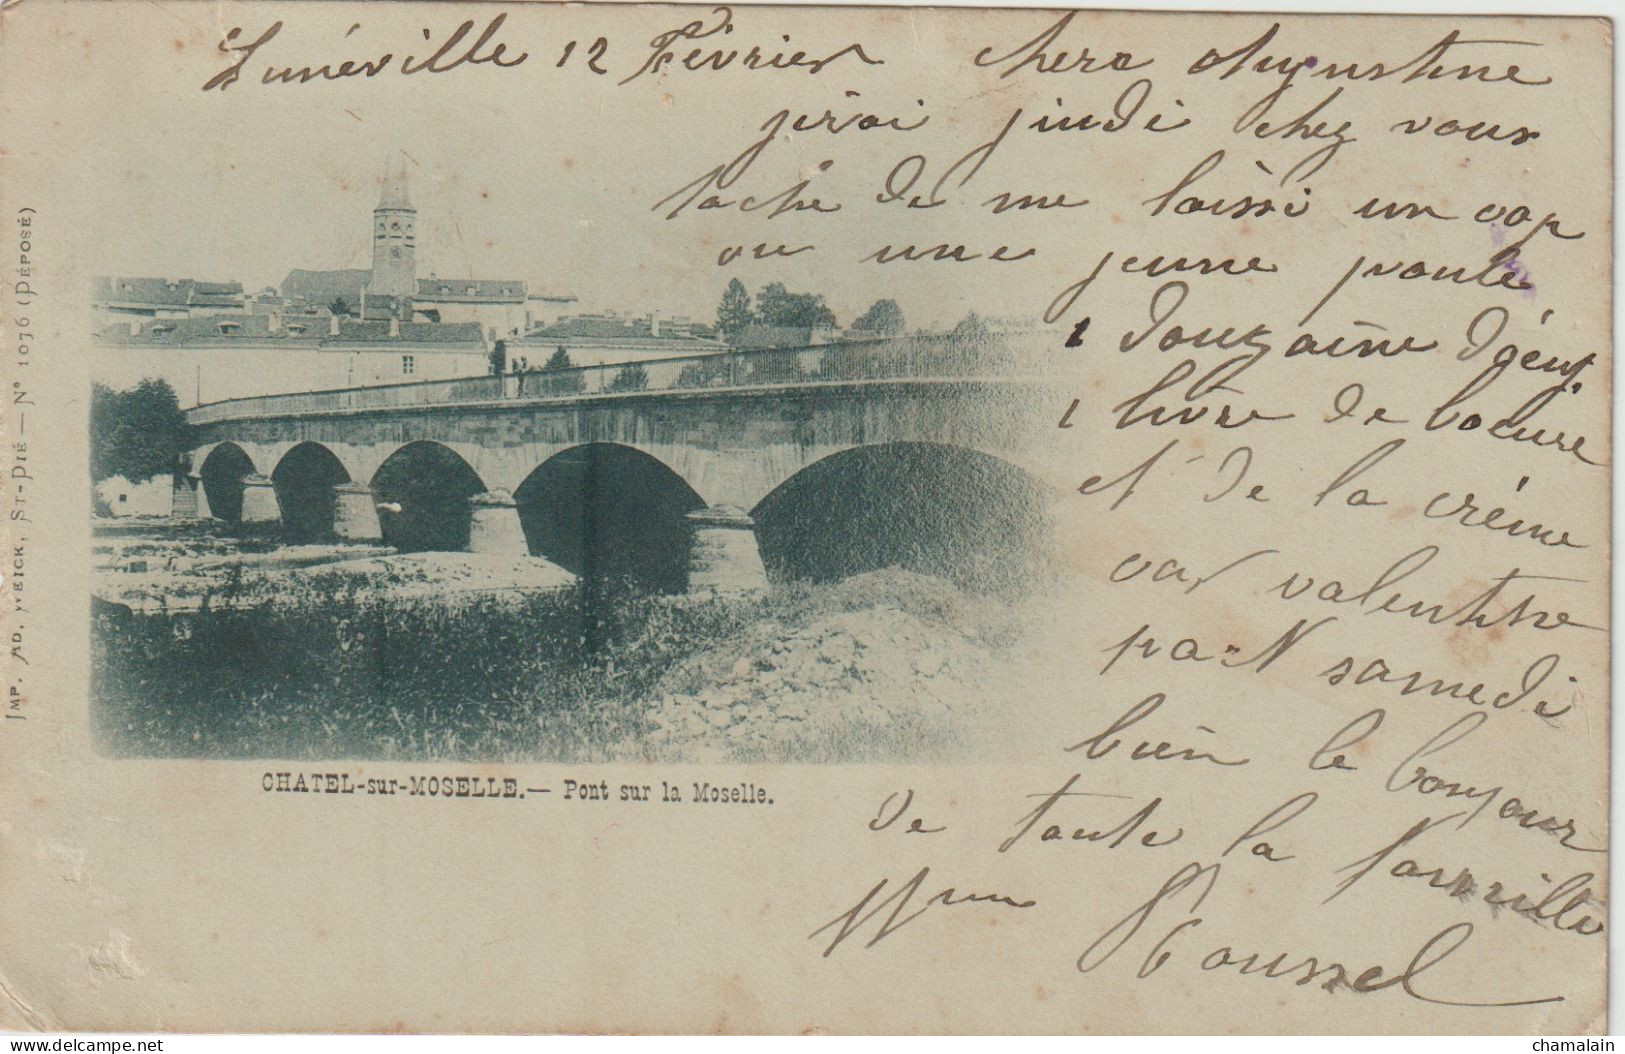 Lunéville 12 Février
chere Augustine
jirai jiudi chez vous
tache de me laissi un cop
ou une jeune poule
1 douzaine d'oeuf
1 livre de beure
et de la créme
car valentine
part samedi
bien le bonjour
de toute la famille
Mme Roussel
CHATEL-sur-MOSELLE.— Pont sur la Moselle.
IMP. AD. WEICK, ST-DIÉ — N° 1076 (DÉPOSÉ)
www.delcampe.net
chamalain